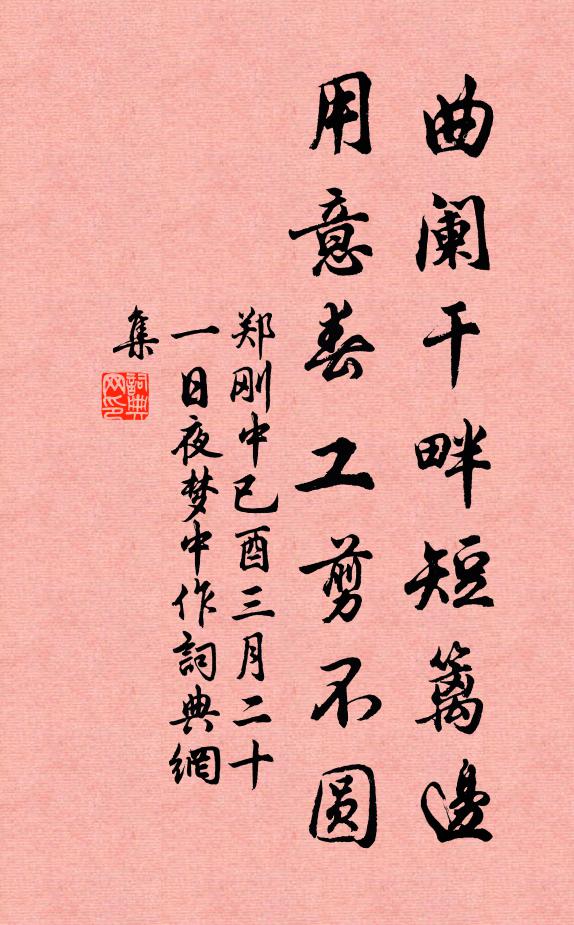 曲阑干畔短篱邊
用意春工剪不圆
郑刚中已酉三月二十
一日夜梦中作詞典網
集
詞典
网印